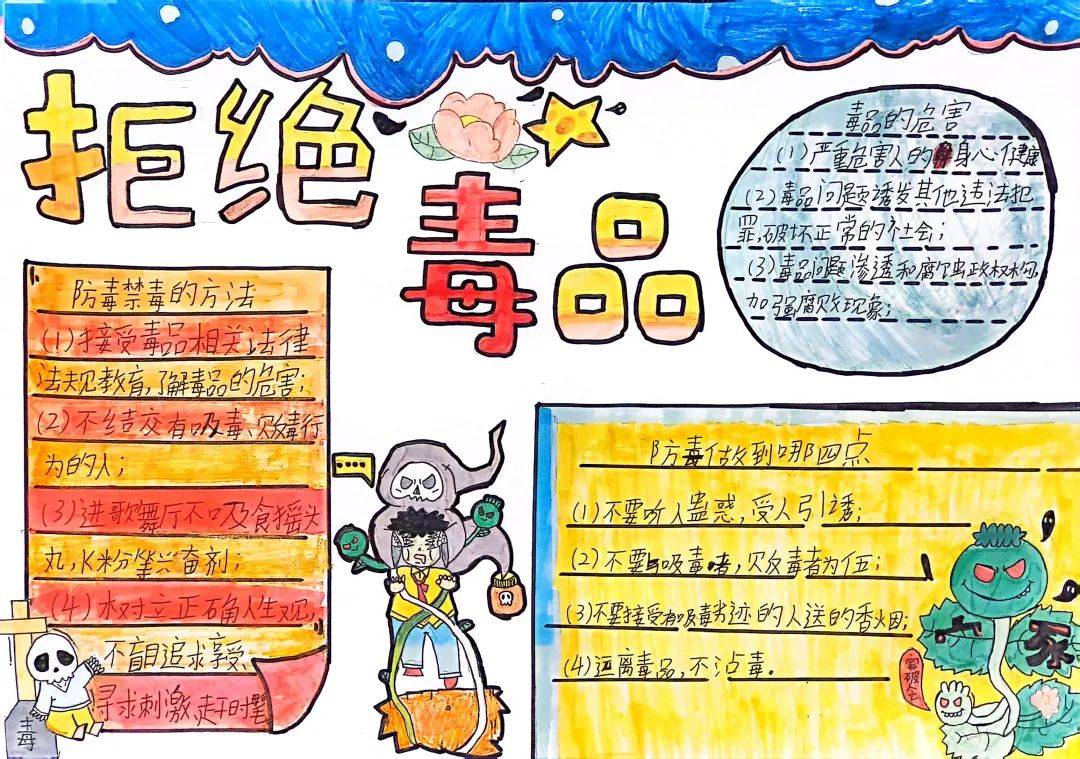 拒绝
毒品
毒品的危害
(1)严重危害人的身心健康
(2)毒品问题诱发其他违法犯
罪,破坏正常的社会;
(3)毒品问题渗透和腐蚀政权构,
加强腐败现象;
防毒禁毒的方法
(1)接受毒品相关法律
法规教育,了解毒品的危害;
(2)不结交有吸毒、贩毒行
为的人;
(3)进歌舞厅不吸食摇头
丸,K粉等兴奋剂;
(4)树立正确人生观,
不盲目追求享受,
寻求刺激,赶时髦
毒
防毒做到哪四点
(1)不要听人蛊惑,受人引诱;
(2)不要与吸毒者,贩毒者为伍;
(3)不要接受有吸毒劣迹的人送的香烟;
(4)远离毒品,不沾毒。